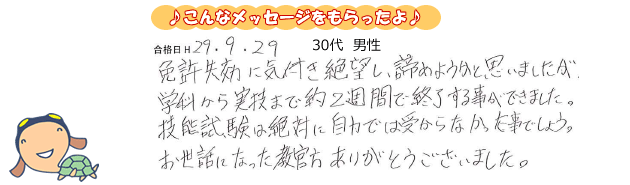 ♪こんなメッセージをもらったよ♪
合格日H 29.9.29 30代 男性
免許失効に気付き絶望し、諦めようかと思いましたが、
学科から実技まで約2週間で終了する事ができました。
技能試験は絶対に自力では受からなかった事でしょう。
お世話になった教官方ありがとうございました。